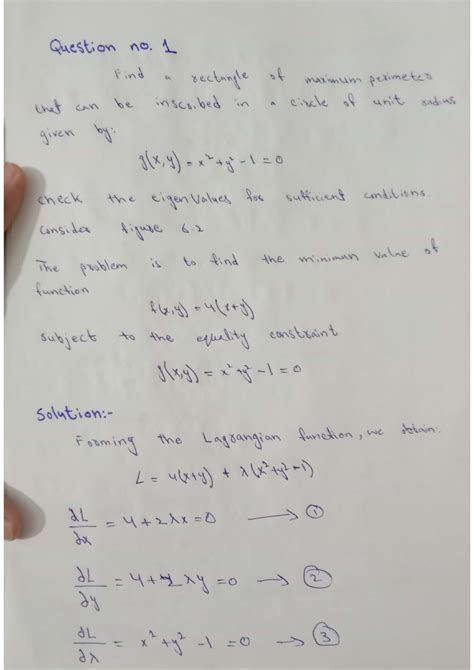 Question no. 1
Find a rectangle of maximum perimeter
that can be inscribed in a circle of unit radius
given by:
g(x,y) = x² + y² - 1 = 0
check the eigenValues for sufficient conditions.
Consider figure 6.2
The problem is to find the minimum value of
function
f(x,y) = 4(x+y)
subject to the equality constraint
g(x,y) = x² + y² - 1 = 0
Solution:-
Forming the Lagrangian function, we obtain:
L = 4(x+y) + λ(x² + y² - 1)
∂L/∂x = 4 + 2λx = 0 → ①
∂L/∂y = 4 + 2λy = 0 → ②
∂L/∂λ = x² + y² - 1 = 0 → ③